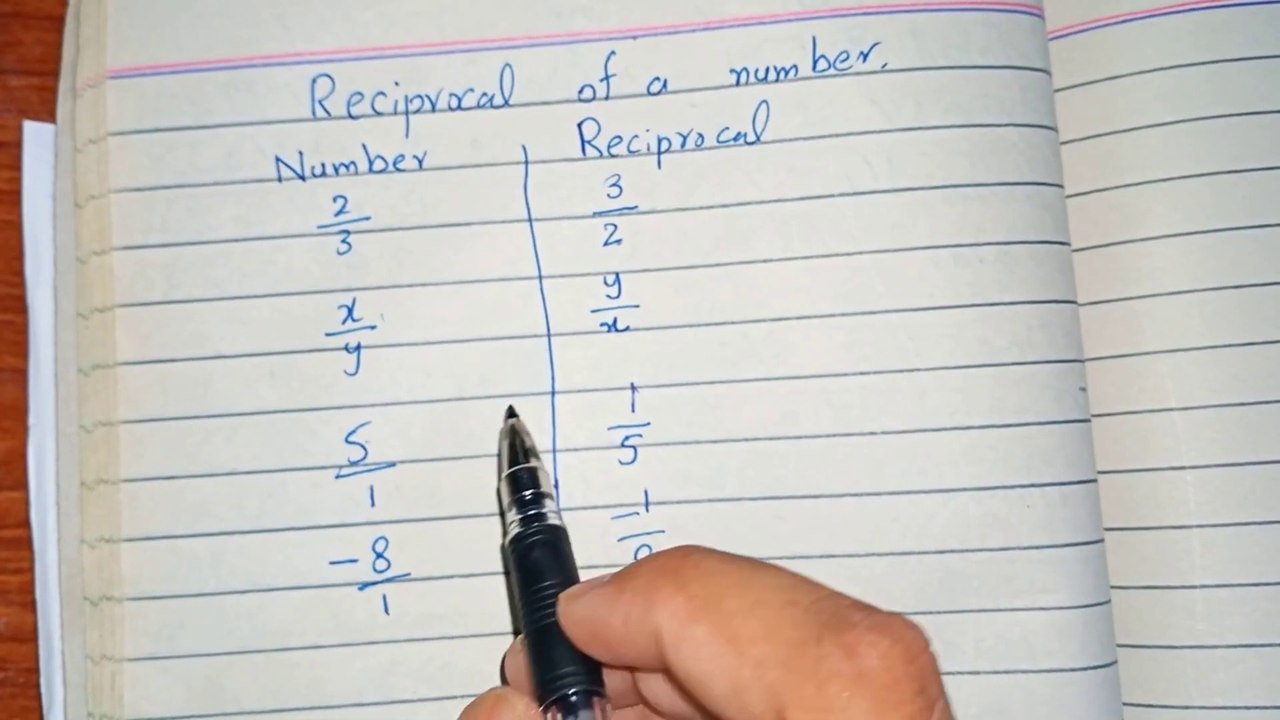 Reciprocal of a number.
Number Reciprocal
2/3 3/2
x/y y/x
5/1 1/5
-8/1 -1/